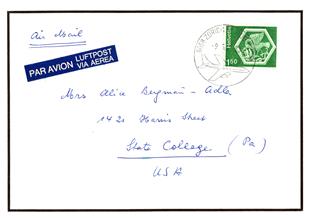 Air Mail
PAR AVION LUFTPOST
VIA AEREA
Helvetia
150
Mrs Alice Bergman - Adler
1421 Harris Street
State College (Pa)
USA